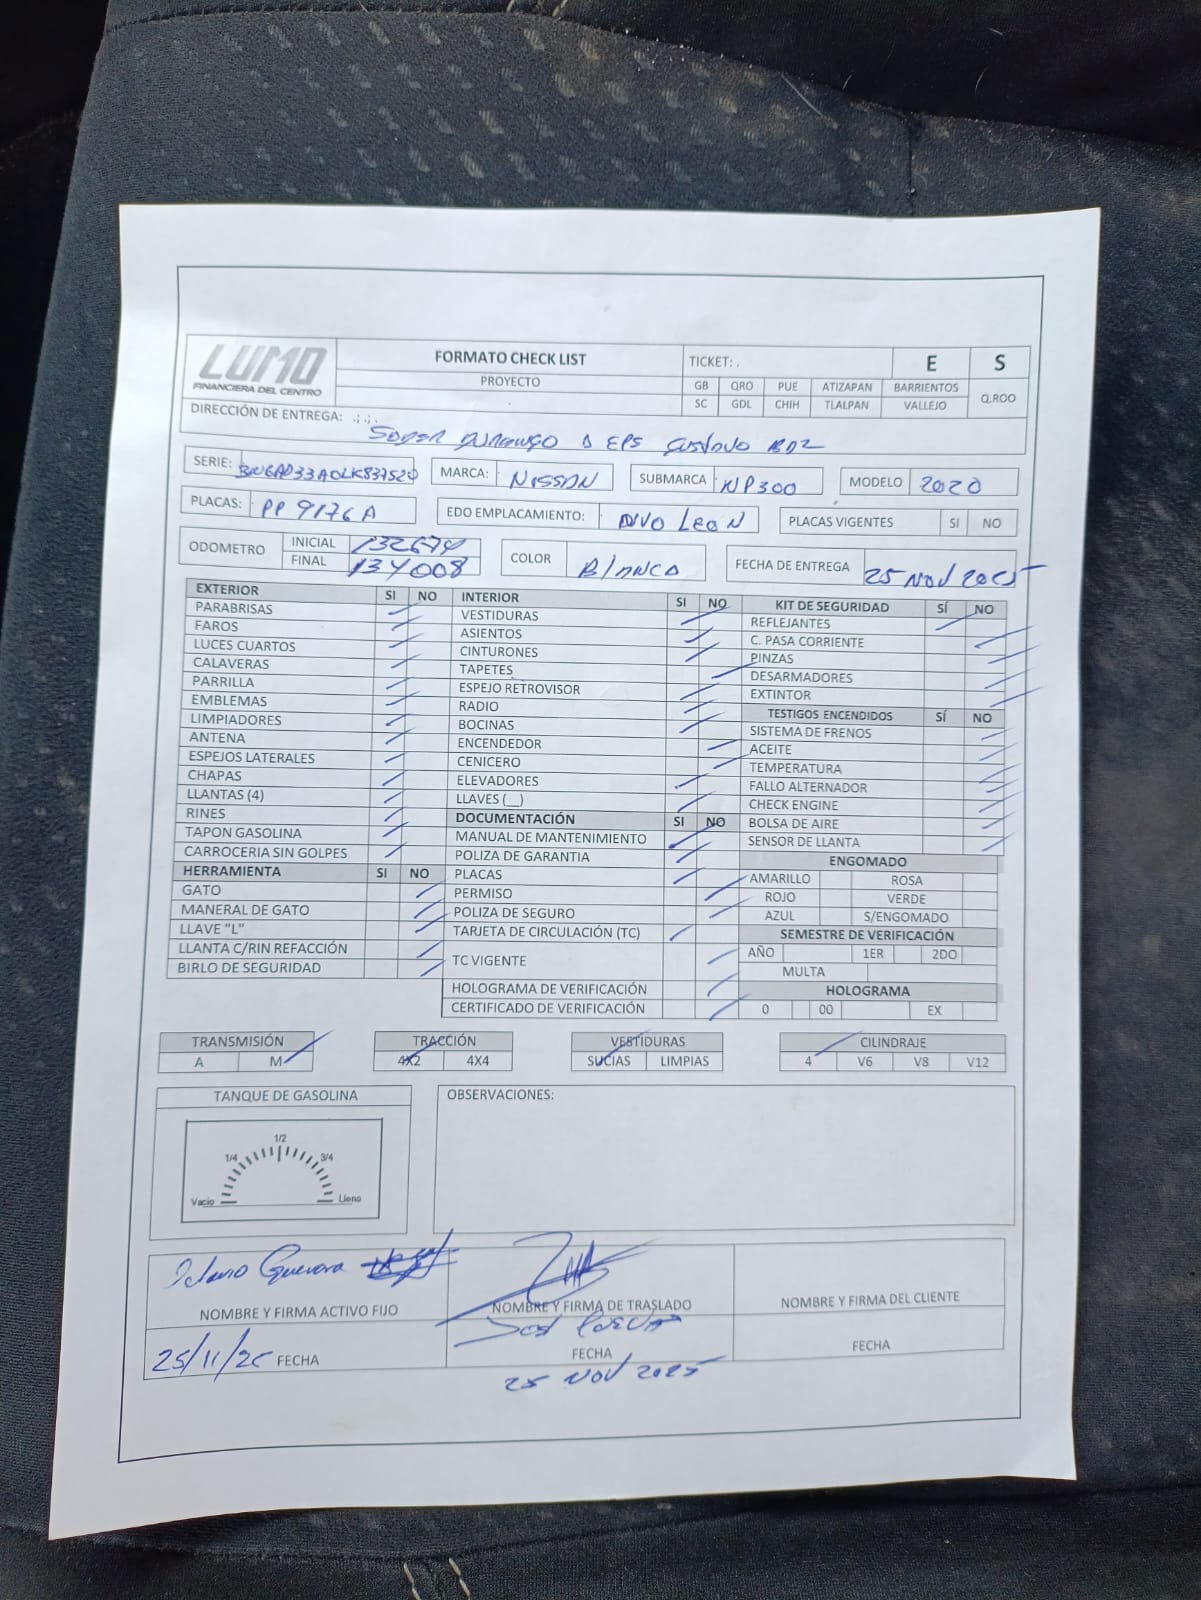 LUMO
FINANCIERA DEL CENTRO
FORMATO CHECK LIST
PROYECTO
TICKET: .
E S
GB QRO PUE ATIZAPAN BARRIENTOS
SC GDL CHIH TLALPAN VALLEJO
Q.ROO
DIRECCIÓN DE ENTREGA: .;.;.
DURANGO A EPS GUSTAVO BAZ
SERIE: 3N6AD33A0LK837520 MARCA: NISSAN SUBMARCA NP300 MODELO 2020
PLACAS: PP 9176 A EDO EMPLACAMIENTO: NVO LEON PLACAS VIGENTES SI NO
ODOMETRO INICIAL 132674
FINAL 134008
COLOR BLANCO FECHA DE ENTREGA 25 NOV 2025
EXTERIOR SI NO
PARABRISAS
FAROS
LUCES CUARTOS
CALAVERAS
PARRILLA
EMBLEMAS
LIMPIADORES
ANTENA
ESPEJOS LATERALES
CHAPAS
LLANTAS (4)
RINES
TAPON GASOLINA
CARROCERIA SIN GOLPES
HERRAMIENTA SI NO
GATO
MANERAL DE GATO
LLAVE "L"
LLANTA C/RIN REFACCIÓN
BIRLO DE SEGURIDAD
INTERIOR SI NO
VESTIDURAS
ASIENTOS
CINTURONES
TAPETES
ESPEJO RETROVISOR
RADIO
BOCINAS
ENCENDEDOR
CENICERO
ELEVADORES
LLAVES (__)
DOCUMENTACIÓN SI NO
MANUAL DE MANTENIMIENTO
POLIZA DE GARANTIA
PLACAS
PERMISO
POLIZA DE SEGURO
TARJETA DE CIRCULACIÓN (TC)
TC VIGENTE
HOLOGRAMA DE VERIFICACIÓN
CERTIFICADO DE VERIFICACIÓN
KIT DE SEGURIDAD SÍ NO
REFLEJANTES
C. PASA CORRIENTE
PINZAS
DESARMADORES
EXTINTOR
TESTIGOS ENCENDIDOS SÍ NO
SISTEMA DE FRENOS
ACEITE
TEMPERATURA
FALLO ALTERNADOR
CHECK ENGINE
BOLSA DE AIRE
SENSOR DE LLANTA
ENGOMADO
AMARILLO ROSA
ROJO VERDE
AZUL S/ENGOMADO
SEMESTRE DE VERIFICACIÓN
AÑO 1ER 2DO
MULTA
HOLOGRAMA
0 00 EX
TRANSMISIÓN
A M
TRACCIÓN
4X2 4X4
VESTIDURAS
SUCIAS LIMPIAS
CILINDRAJE
4 V6 V8 V12
TANQUE DE GASOLINA
1/2
1/4 3/4
Vacio Lleno
OBSERVACIONES:
Octavio Guevara
NOMBRE Y FIRMA ACTIVO FIJO
25/11/25 FECHA
NOMBRE Y FIRMA DE TRASLADO
FECHA
25 NOV 2025
NOMBRE Y FIRMA DEL CLIENTE
FECHA